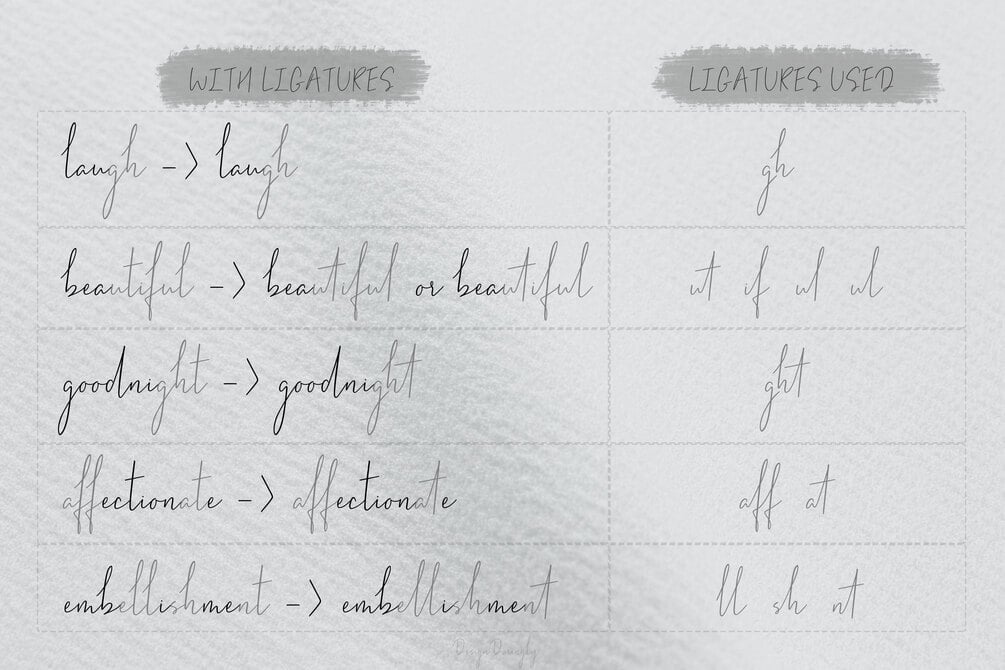 WITH LIGATURES LIGATURES USED
laugh -> laugh gh
beautiful -> beautiful or beautiful ut if ul ul
goodnight -> goodnight ght
affectionate -> affectionate aff at
embellishment -> embellishment ll sh nt